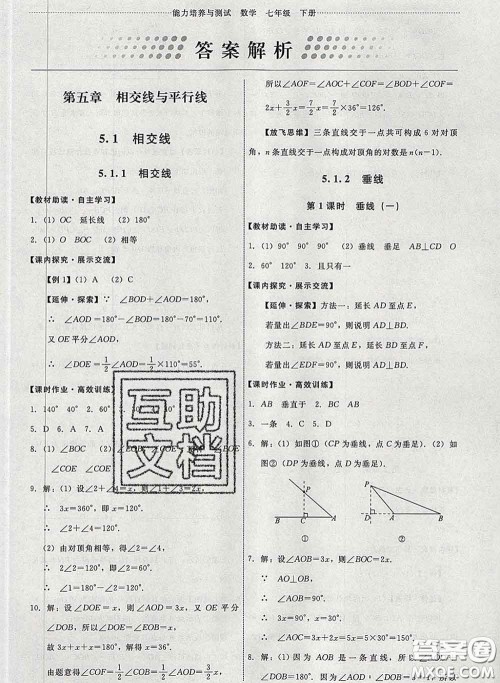 能力培养与测试 数学 七年级 下册
答案解析
第五章 相交线与平行线
5.1 相交线
5.1.1 相交线
【教材助读·自主学习】
1. (1) OC 延长线 (2) 180°
2. (1) O BOC (2) 相等
【课内探究·展示交流】
【例1】(1) A (2) C
【延伸·探索】∵ ∠BOD+∠AOD=180°,
∴ ∠AOD=180°-∠BOD=180°-70°=110°.
又 OE 平分∠AOD,
∴ ∠DOE=1/2∠AOD=1/2×110°=55°.
【课时作业·高效训练】
1. 140° 40° 2. 60°
5. D 6. A 7.
8. (1) ∠BOE
∠COE
9. 解：(1) 设∠2
∴ 3x=360°，即 x=120°.
∴ ∠2=∠4=120°.
(2) 由对顶角相等，得∠2=∠4,
∴ 2∠2=120°，即∠2=60°.
∴ ∠1=180°-∠2=120°.
10. 解：设∠DOE=x，则∠AOD=3x，又 OE 平分
∠BOD，得∠BOE=x.
故 3x+x+x=180°，解得 x=36°.
由题意得∠COF=1/2∠COE=1/2
所以∠AOF=∠AOC+∠COF=∠BOD+∠COF=
2x+3/2x=7/2x=7/2×36°=126°.
【放飞思维】三条直线交于一点共可构成 6 对对顶
角，n 条直线交于一点构成对顶角的对数是 n(n-1).
5.1.2 垂线
第1课时 垂线(一)
【教材助读·自主学习】
1. (1) 90° 90° 90° (2) 垂线 垂足 AB⊥CD O
2. 60° 120° 3. 且只有一
【课内探究·展示交流】
【延伸·探索】方法一：延长 AD 至点 E,
若量出∠BDE=90°，则说明 AD⊥BD.
方法二：延长 BD 至点 E,
若量出∠ADE=90°，则说明 AD⊥BD.
【课时作业·高效训练】
1. AB 垂直于 D
3. 一条 4. C 5. D
6. 解：(1) 如图① (CP 为垂线，点 C 为垂足). (2) 如
图② (DP 为垂线，点 D 为垂足).
P
B
C
A
①
P
D
A
②
7. 解：设∠AOB=3x，则∠AOC=2x.
∵ AO⊥OB,
∴ ∠AOB=90°.
∴ 3x=90°.
∴ x=30°.
8. 解：(1) 因为 AOB 是一条直线，所以
∠DOB=180°.
互助
文档